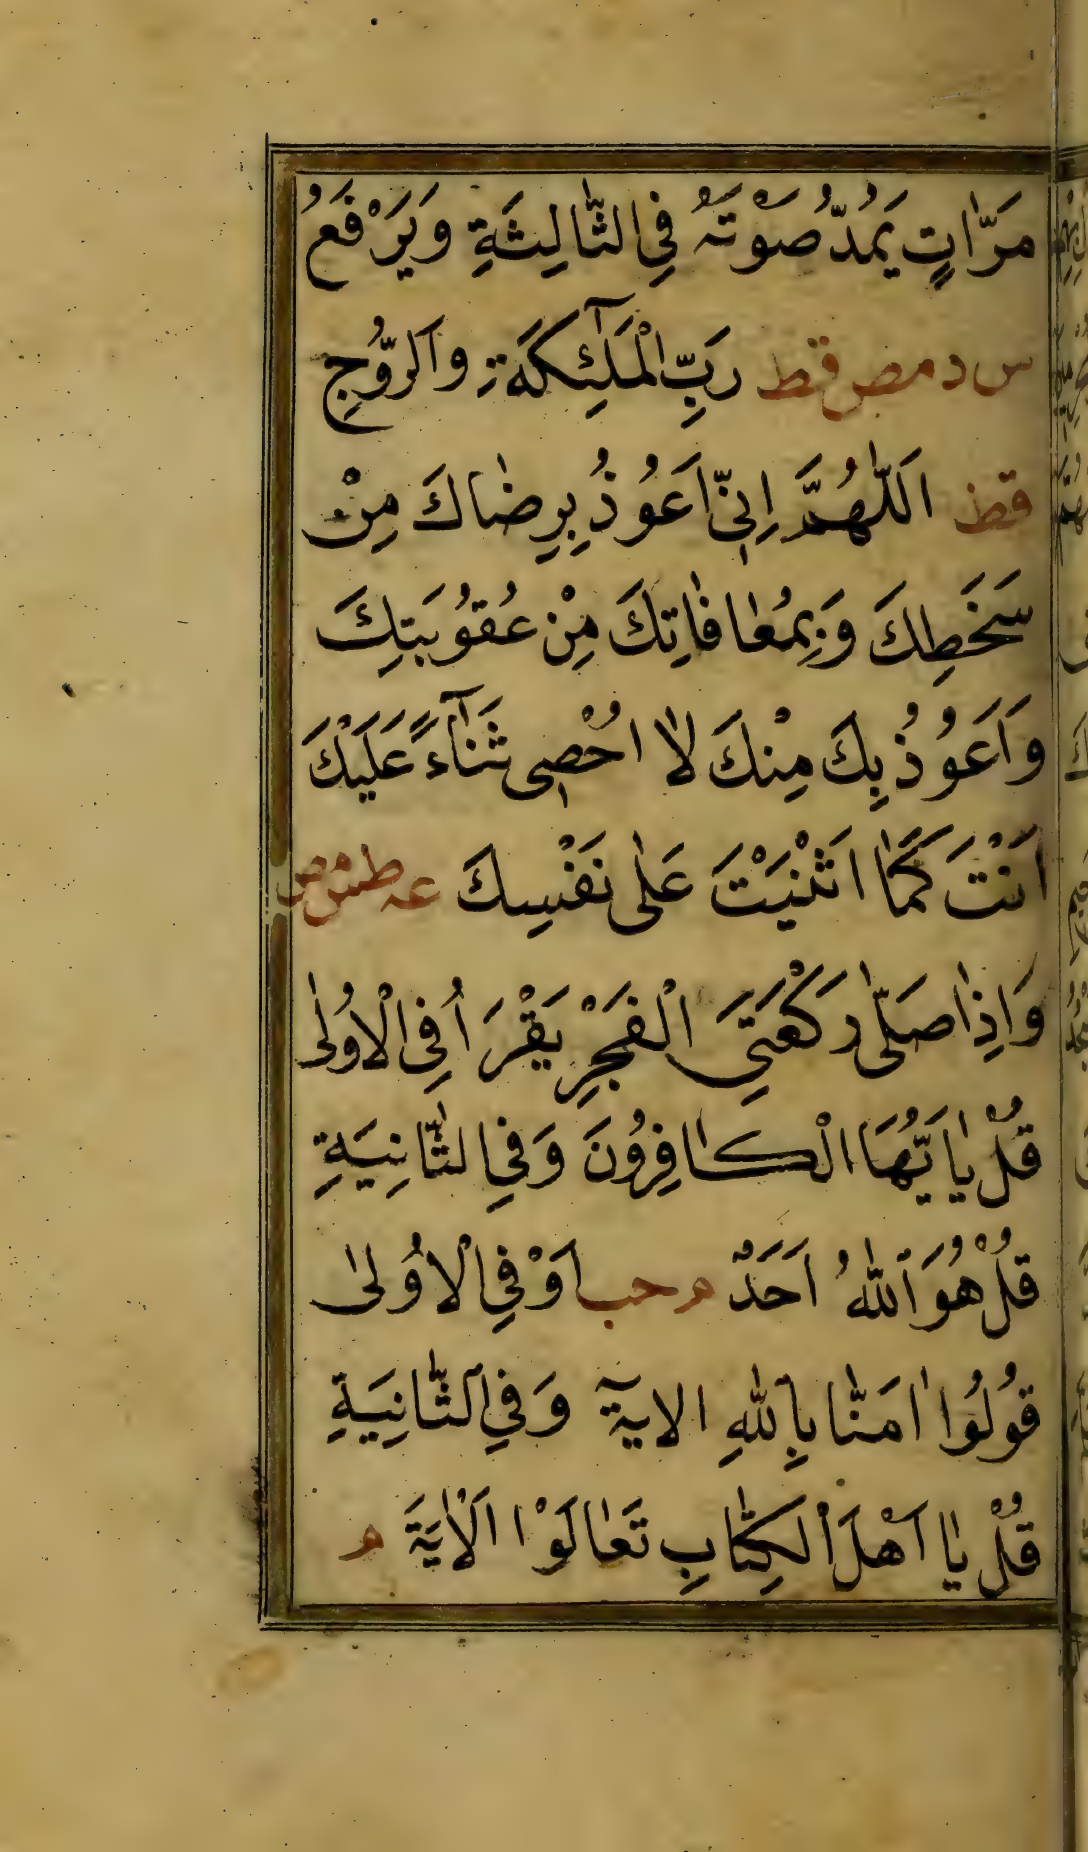 مَرَّاتٍ يَمُدُّ صَوْتَهُ فِي الثَّالِثَةِ وَيَرْفَعُ
س د مص قط رَبِّ الْمَلٰٓئِكَةِ وَالرُّوحِ
قط اَللّٰهُمَّ اِنِّي اَعُوذُ بِرِضَاكَ مِنْ
سَخَطِكَ وَبِمُعَافَاتِكَ مِنْ عُقُوبَتِكَ
وَاَعُوذُ بِكَ مِنْكَ لَا اُحْصِي ثَنَآءً عَلَيْكَ
اَنْتَ كَمَا اَثْنَيْتَ عَلٰى نَفْسِكَ عه طس مص
وَاِذَا صَلّٰى رَكْعَتَيِ الْفَجْرِ يَقْرَأُ فِي الْاُولٰى
قُلْ يَا اَيُّهَا الْكَافِرُونَ وَفِي الثَّانِيَةِ
قُلْ هُوَ اللّٰهُ اَحَدٌ م حب اَوْ فِي الْاُولٰى
قُولُوا اٰمَنَّا بِاللّٰهِ الاية وَفِي الثَّانِيَةِ
قُلْ يَا اَهْلَ الْكِتَابِ تَعَالَوْا اَلْاٰيَةَ م